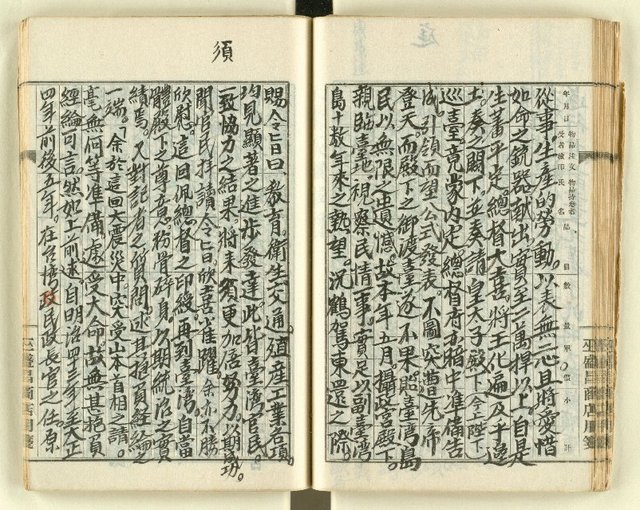 從事生產的勞動。以表無二心。且將愛惜
如命之銃器献出實至二萬捍以上。自是
生蕃平定。總督大喜。將王化遍及于邊
土奏之闕下。並奏請皇太子殿下(今上陛下)
巡臺。竟蒙内定。總督府方稍中準備告
成。引領而望公式發表。不圖突遭先帝
登天。而殿下之御渡臺遂不果。然臺湾島
民以為無限之遺憾。故本年五月攝政宮殿下。
親臨臺地。視察民情事。實足以副臺湾
島十數年來之熱望。況鶴駕東還之際。
須
賜令旨曰 教育。衛生。交通。殖産工業各項。
均見顯著之進步發達。此皆臺湾官民。
一致協力之結果。將來須更加倍努力以期成功。
聞官民拝讀令旨。欣喜雀躍。余亦不勝
欣慰。這回佩總督之印綬再到臺湾。自當
體殿下之尊意。粉骨碎身。以期統治之實
績焉。又對記者之質問。述其抱負經綸之
一端。「余於這回大震災中。突受山本首相之請。
毫無何等準備。處受大命。故無甚抱負
經綸可言。然如上前述。自明治四十三年至大正
四年前後五年。在台湾政民政長官之任。原
年月日
物品注文
受者
捺印氏名
品目
數量
單價
小計